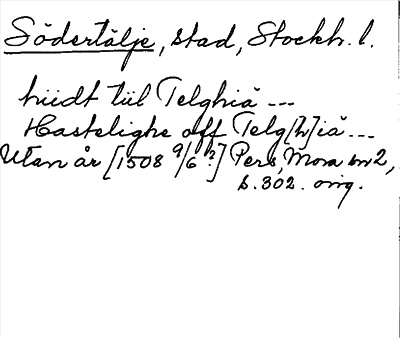 Södertälje, stad, Stockh. l.
hiidt tiil Telghiä ---
Hastelighe off Telg[h]iä ---
Utan år [1508 9/6 ?] Pers, Mora m 2,
s. 302. orig.